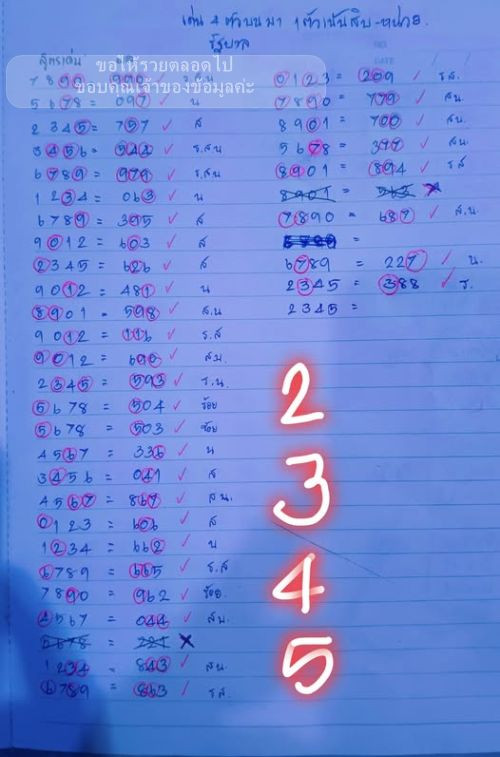 เด่น 4 ตัวบน มา 1 ตัวเน้นสิบ-หน่วย.
รัฐบาล
สูตรเด่น
ขอให้รวยตลอดไป
ขอบคุณเจ้าของข้อมูลค่ะ
7890 = 990 ✓ ร.สน
5678 = 097 ✓ น
2345 = 757 ✓ ส
3456 = 544 ✓ ร.สน
6789 = 979 ✓ ร.สน
1234 = 063 ✓ น
6789 = 395 ✓ ส
9012 = 603 ✓ ส
2345 = 626 ✓ ส
9012 = 481 ✓ น
8901 = 598 ✓ ส.น
9012 = 116 ✓ ร.ส
9012 = 690 ✓ สน.
2345 = 593 ✓ ร.น
5678 = 504 ✓ ร้อย
5678 = 503 ✓ ร้อย
4567 = 336 ✓ น
3456 = 041 ✓ ส
4567 = 867 ✓ สน.
0123 = 606 ✓ ส
1234 = 662 ✓ น
6789 = 665 ✓ ร.ส
7890 = 962 ✓ ร้อย.
4567 = 044 ✓ สน.
5678 = 221 ✗
1234 = 843 ✓ สน.
6789 = 863 ✓ ร.ส
0123 = 209 ✓ ร.ส.
7890 = 779 ✓ สน.
8901 = 700 ✓ สน.
5678 = 377 ✓ สน.
8901 = 894 ✓ ร.ส
8901 = 563 ✗
7890 = 687 ✓ ส.น.
=
6789 = 227 ✓ น.
2345 = 388 ✓ ร.
2345 =
2
3
4
5